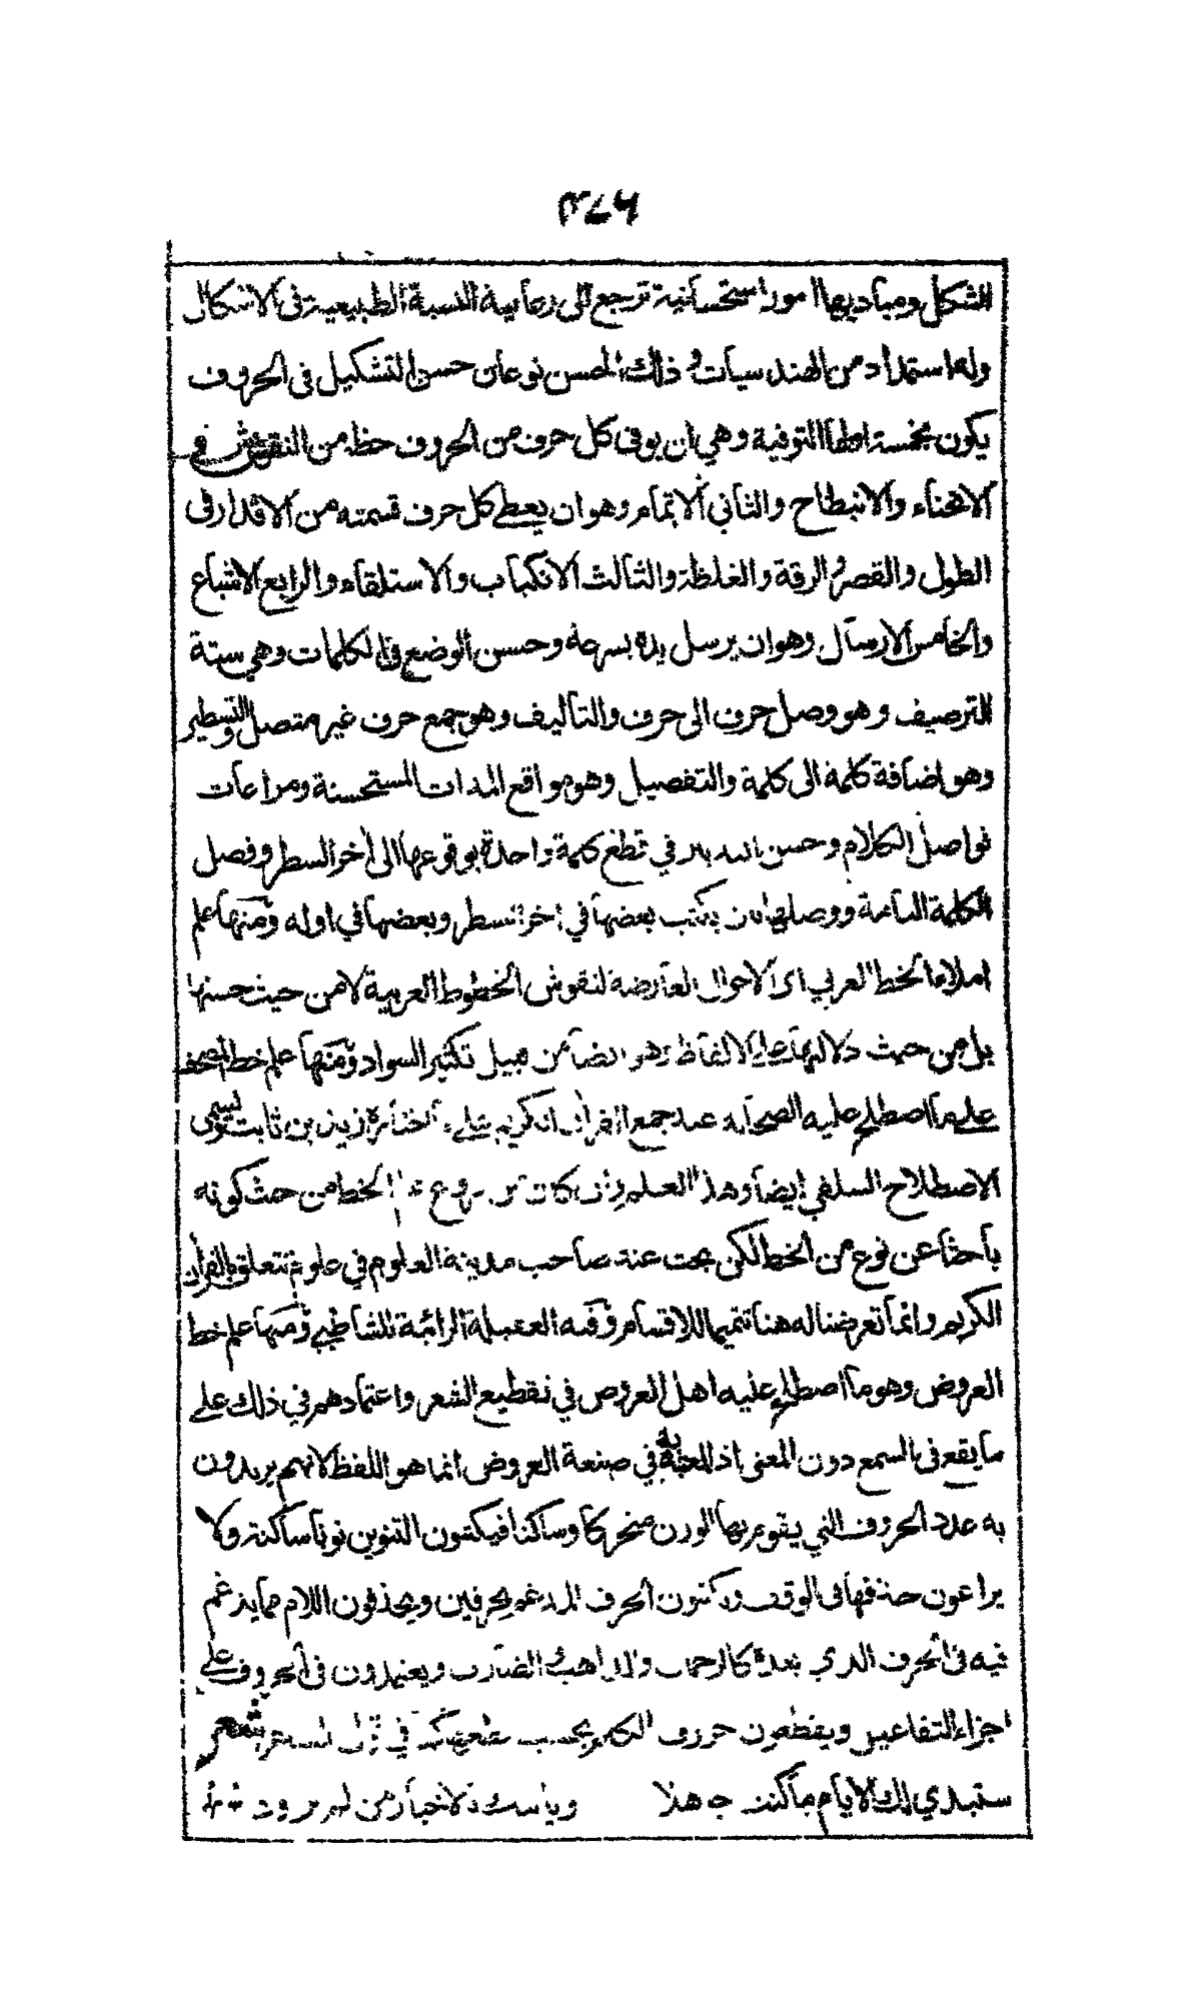 ٣٧٦
الشكل ومباديها امور استحسانية ترجع الى رعاية النسبة الطبيعية فى الاشكال
وله استمداد من الهندسيات وذلك الحسن نوعان حسن التشكيل فى الحروف
يكون بخمسة اولها التوفية وهي ان يوفى كل حرف من الحروف حظه من النقوش في
الانحناء والانبطاح والثاني الاتمام وهو ان يعطى كل حرف قسمته من الاقدار فى
الطول والقصر والرقة والغلظة والثالث الانكباب والاستلقاء والرابع الاشباع
والخامس الارسال وهو ان يرسل يده بسرعة وحسن الوضع فى الكلمات وهي ستة
الترصيف وهو وصل حرف الى حرف والتأليف وهو جمع حرف غير متصل والتسطير
وهو اضافة كلمة الى كلمة والتفصيل وهو مواقع المدات المستحسنة ومراعات
فواصل الكلام وحسن التدبير في قطع كلمة واحدة بوقوعها الى اخر السطر وفصل
الكلمة التامة ووصلها بان يكتب بعضها في اخر السطر وبعضها في اوله ومنها علم
املاء الخط العربي اى الاحوال العارضة لنقوش الخطوط العربية لا من حيث حسنها
بل من حيث دلالتها على الالفاظ وهو ايضا من قبيل تكثير السواد ومنها علم خط المصحف
على ما اصطلح عليه الصحابة عند جمع القرأن الكريم على ما اختاره زيد بن ثابت ويسمى
الاصطلاح السلفي ايضا وهذا العلم وان كان من فروع الخط من حيث كونه
باحثا عن نوع من الخط لكن بحث عنه صاحب مدينة العلوم في علوم تتعلق بالقرأن
الكريم وانما تعرضنا له هنا تتميما للاقسام وفيه العقيلة الرائية للشاطبي ومنها علم خط
العروض وهو ما اصطلح عليه اهل العروض في تقطيع الشعر واعتمادهم في ذلك على
ما يقع فى السمع دون المعنى اذ المعتد به في صنعة العروض انما هو اللفظ لانهم يريدون
به عدد الحروف التي يقوم بها الوزن متحركا وساكنا فيكتبون التنوين نونا ساكنة ولا
يراعون حذفها فى الوقف ويكتبون الحرف المدغم بحرفين ويحذفون اللام مما يدغم
فيه فى الحرف الذي بعده كالرحمن والذاهب والضارب ويعتمدون فى الحروف على
اجزاء التفاعيل ويقطعون حروف الكلم بحسب تقطيعها كما في قول الشاعر شعر
ستبدي لك الايام ما كنت جاهلا ويأتيك بالاخبار من لم تزود